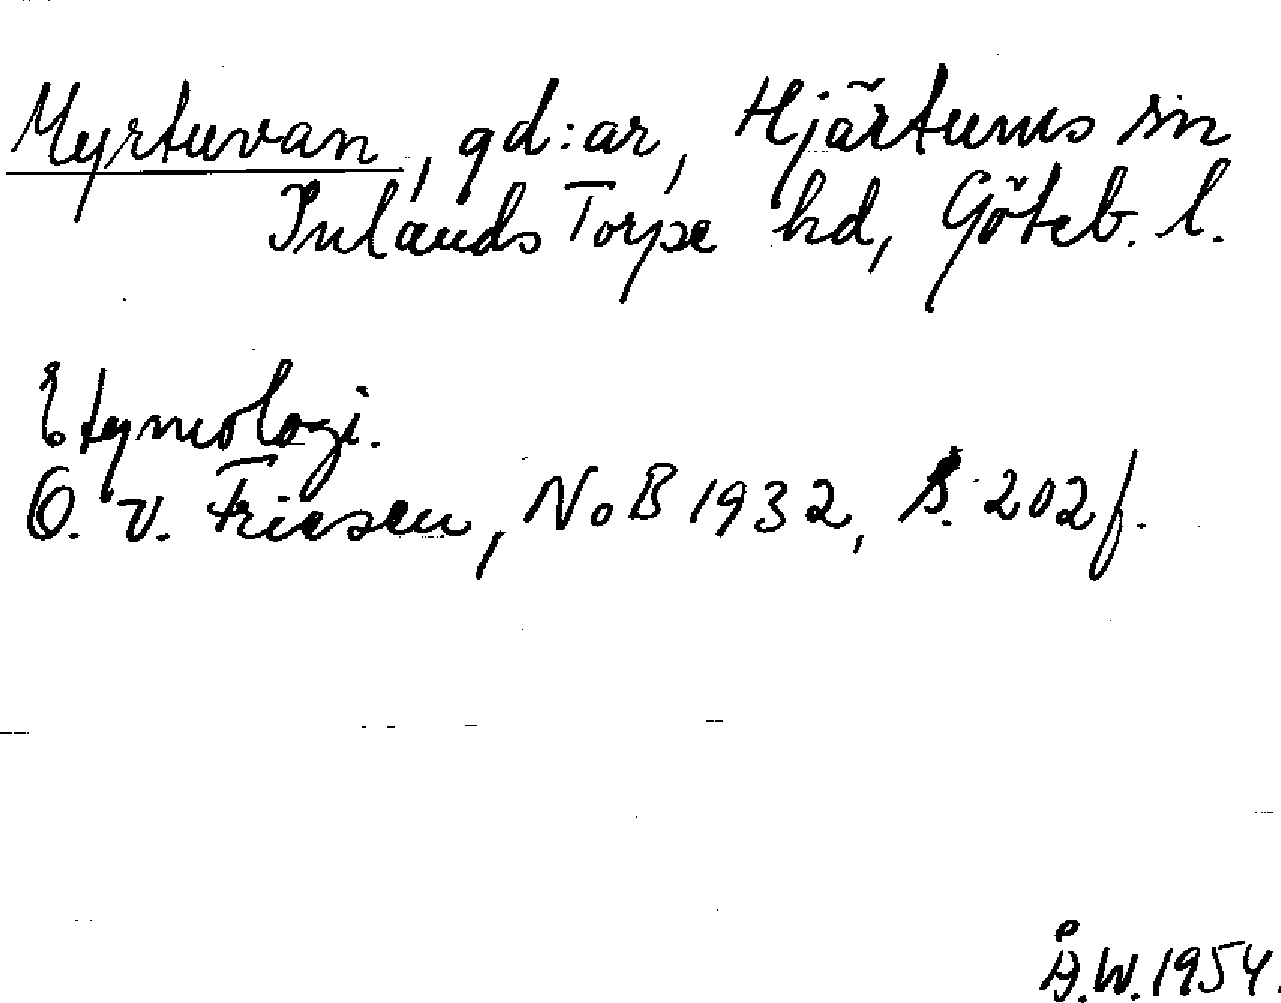 Myrtuvan, gd:ar, Hjärtums sn
Inlands Torpe hd, Göteb. l.
Etymologi.
O. v. Friesen, NoB 1932, s. 202 f.
Å.W. 1954.